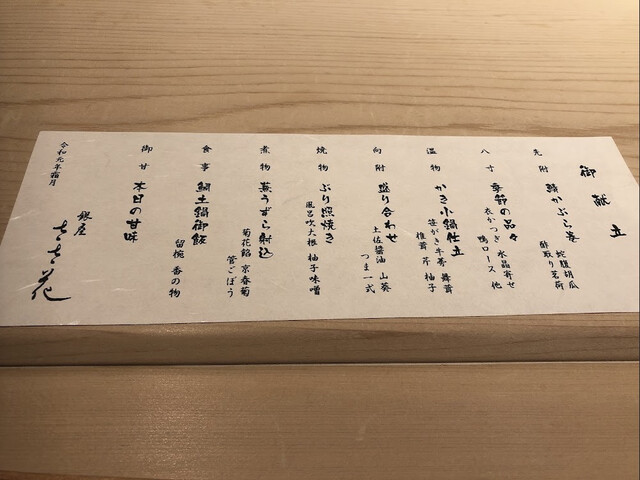 御献立
先附 鯛かぶら巻
蛇腹胡瓜
酢取り茗荷
八寸 季節の品々
衣かつぎ 水晶寄せ
鴨ロース 他
温物 かき小鍋仕立
笹がき牛蒡 舞茸
椎茸 芹 柚子
向附 盛り合わせ
土佐醤油 山葵
つま一式
焼物 ぶり照焼き
風呂吹大根 柚子味噌
煮物 蕪うずら射込
菊花餡 京春菊
管ごぼう
食事 鯛土鍋御飯
留椀 香の物
御甘 本日の甘味
令和元年霜月
銀座